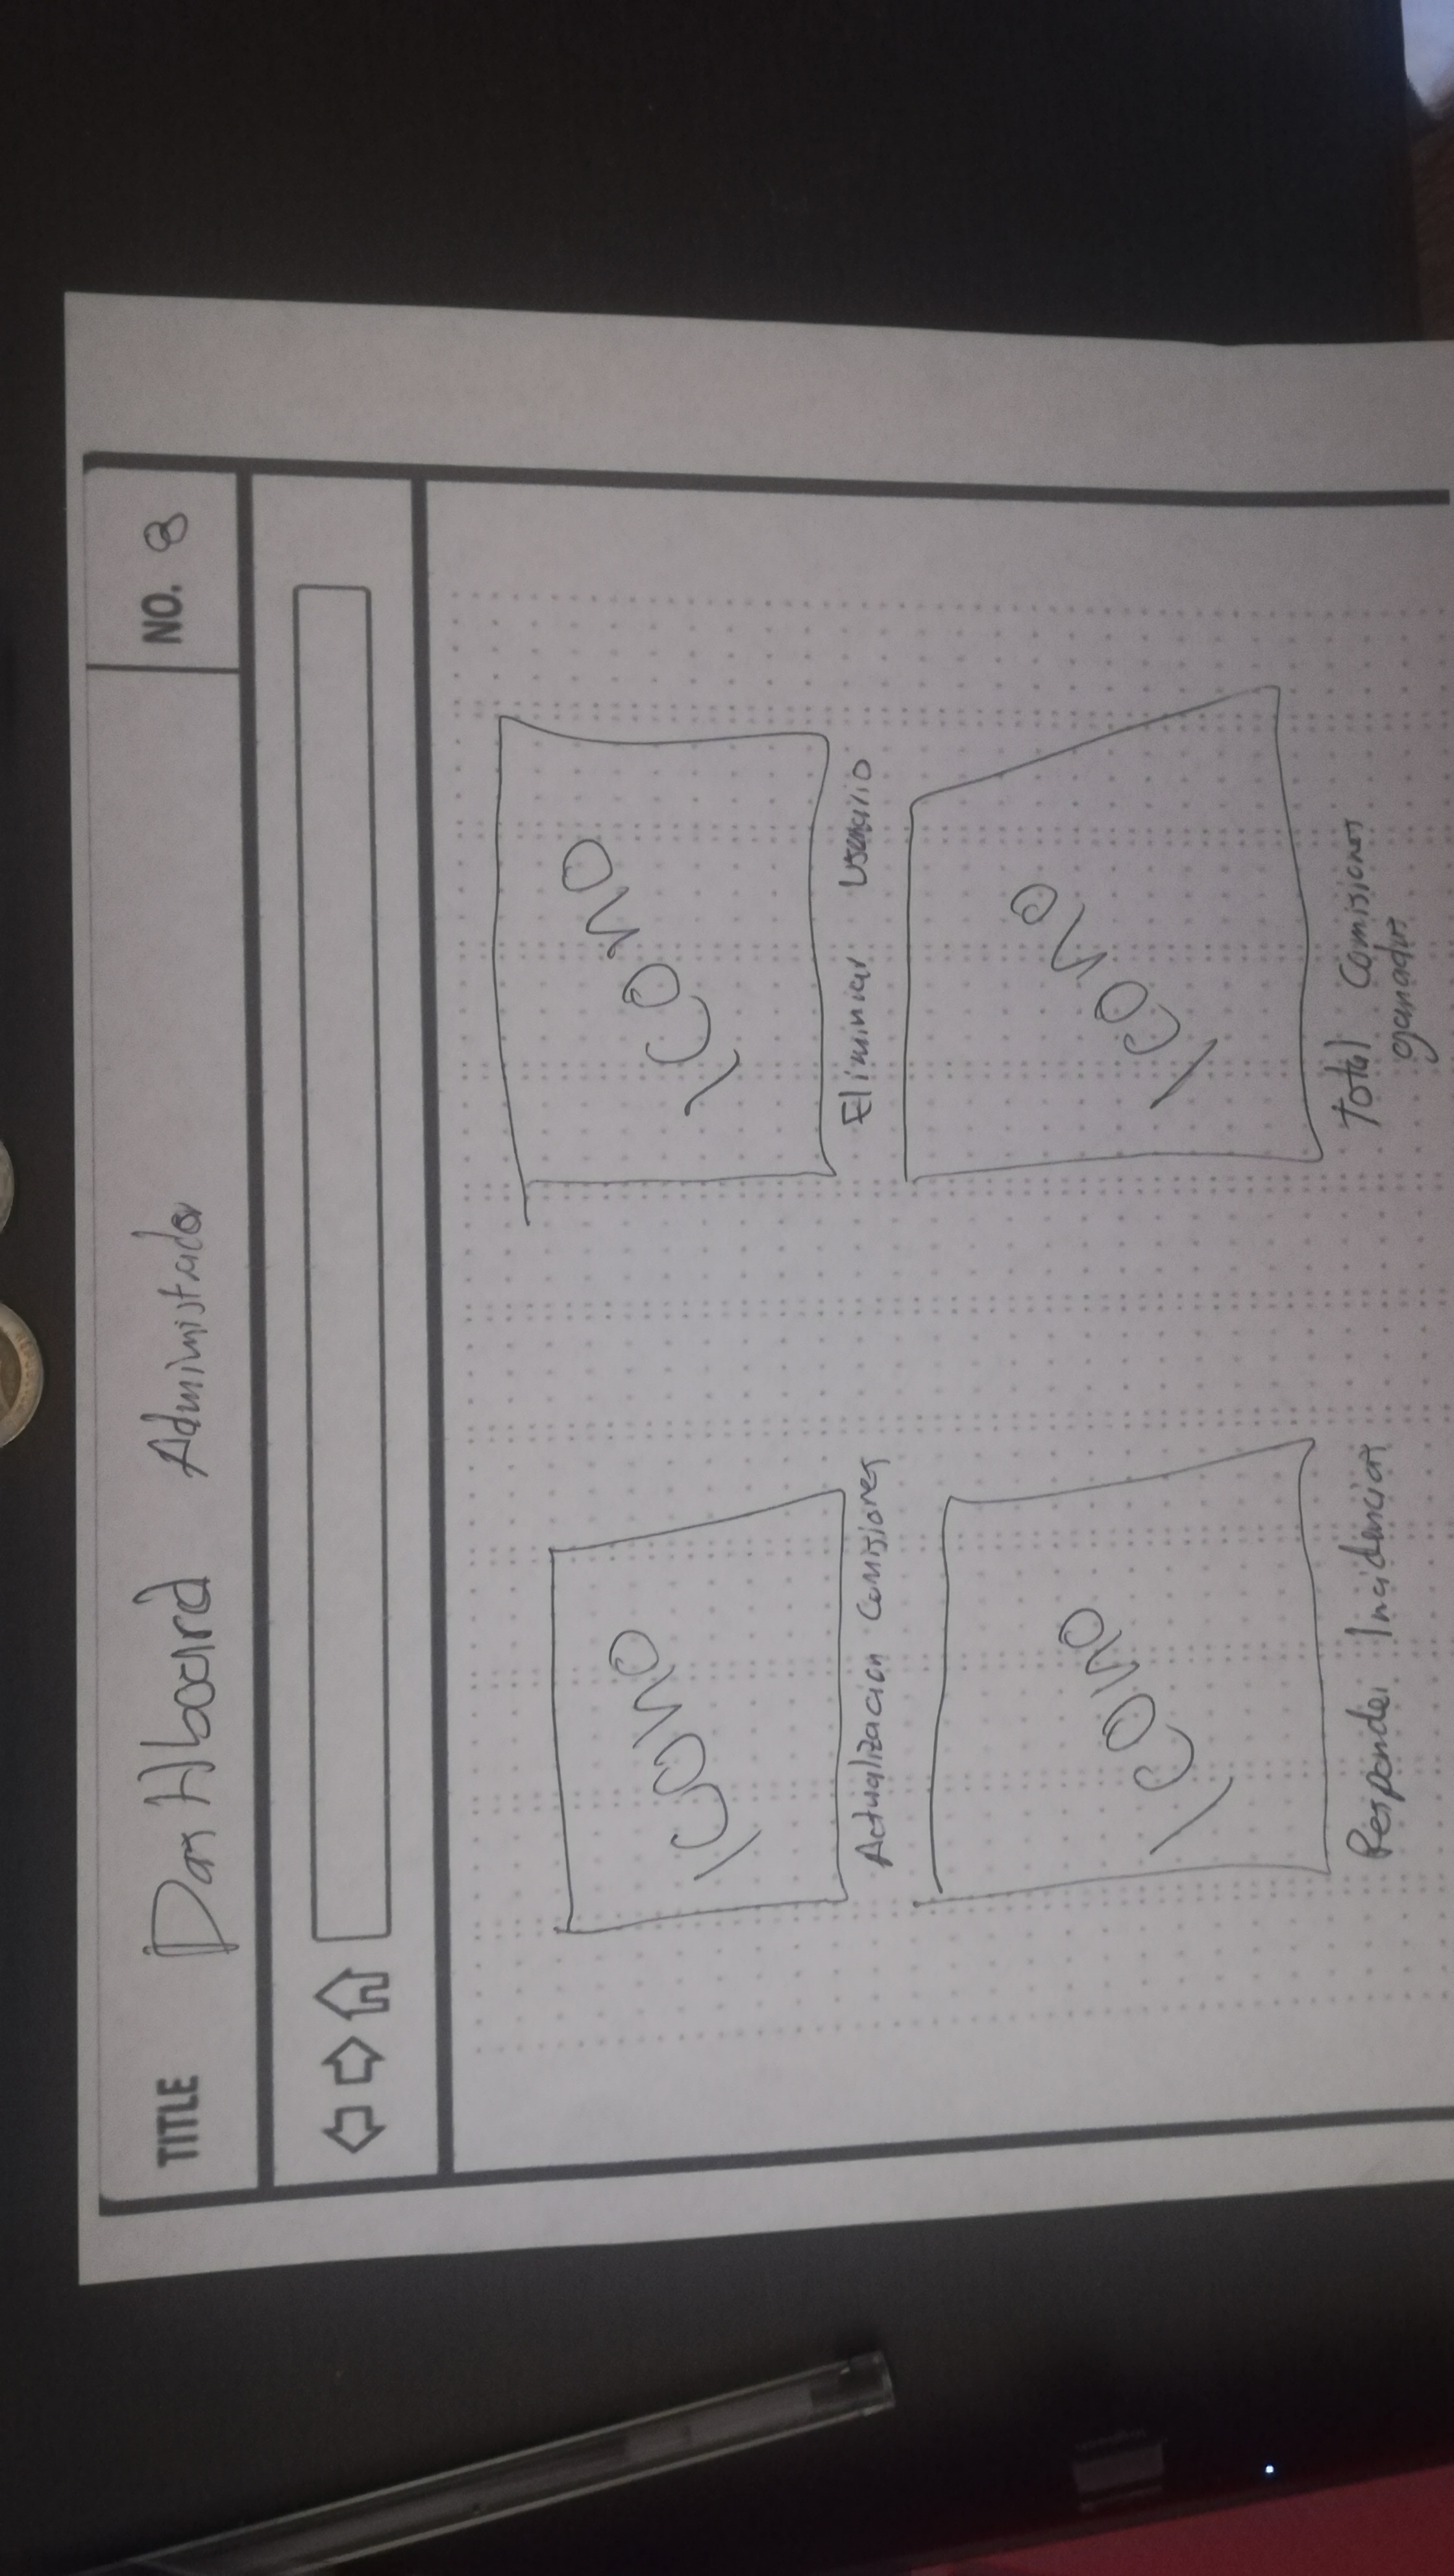 TITLE DasHboard Administrador NO. 8
ICONO ICONO
Actualizacion Comisiones Eliminar usuario
ICONO ICONO
Responder Incidencias Total Comisiones
ganadas